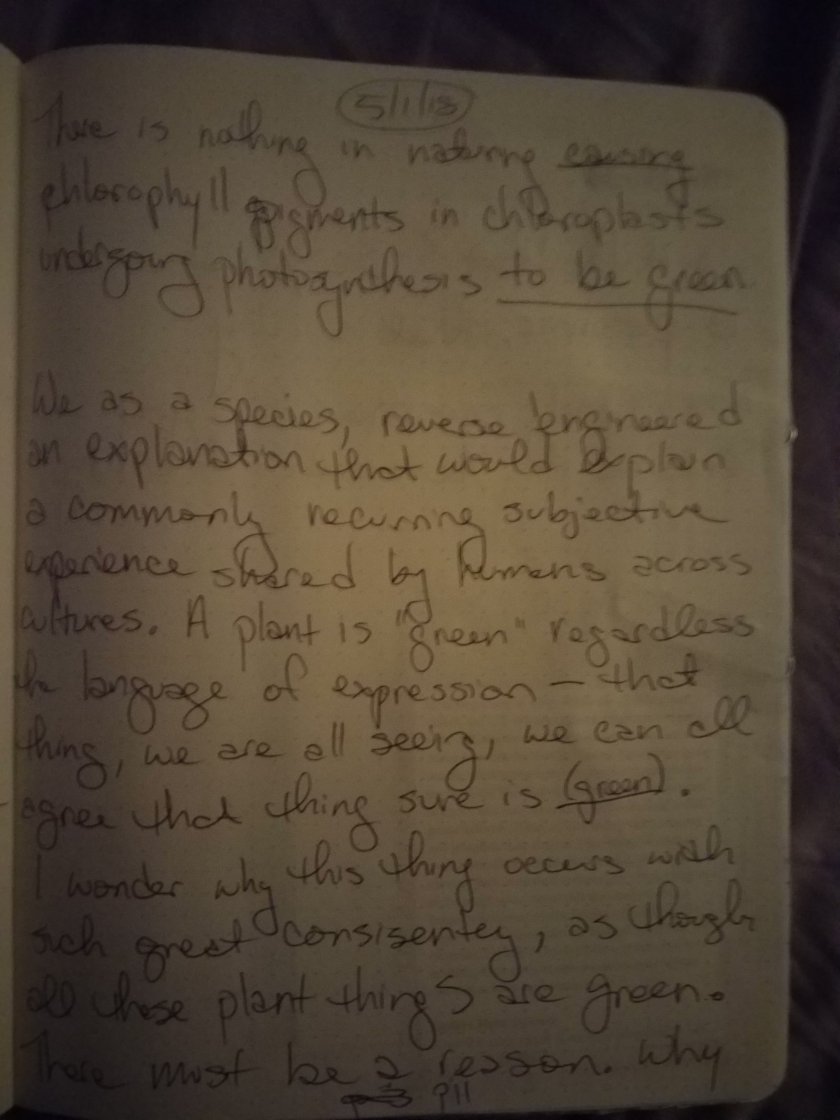 5/1/18
There is nothing in naturing causing
chlorophyll pigments in chloroplasts
undergoing photosynthesis to be green
We as a species, reverse engineered
an explanation that would explain
a commonly recurring subjective
experience shared by humans across
cultures. A plant is "green" regardless
the language of expression – that
thing, we are all seeing, we can all
agree that thing sure is (green).
I wonder why this thing occurs with
such great consisentey, as though
all these plant things are green.
There must be a reason. Why
P11